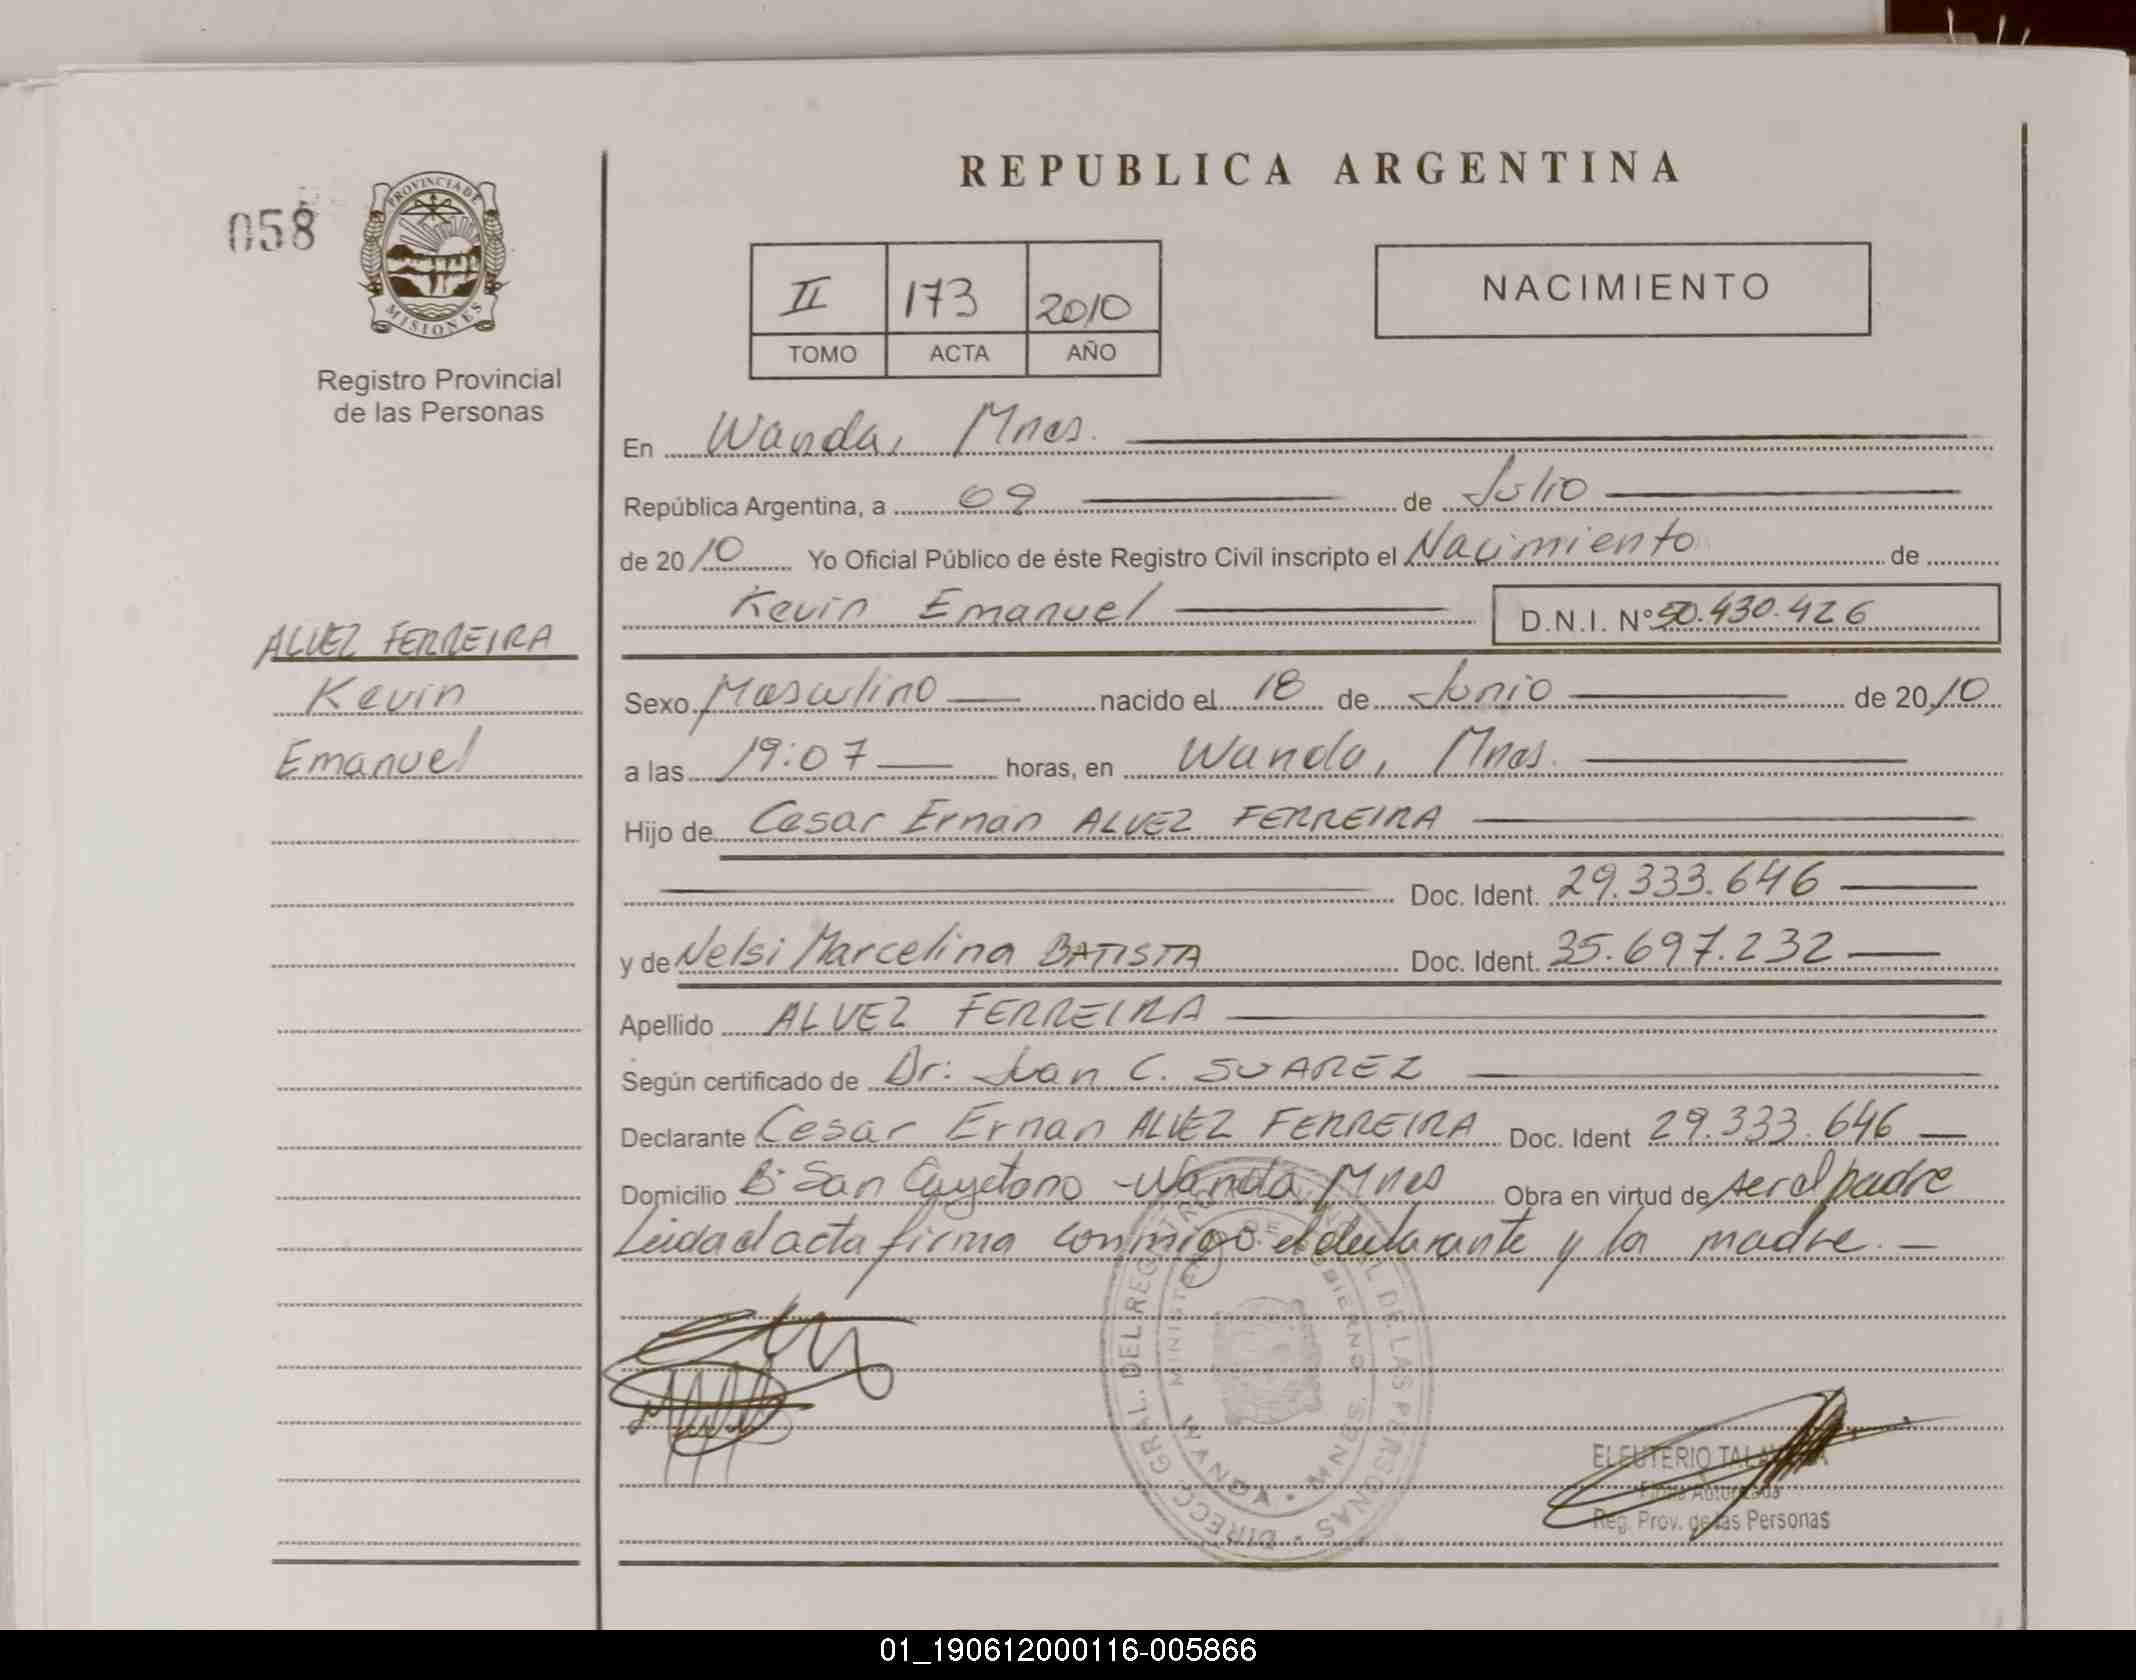 REPUBLICA ARGENTINA
058
PROVINCIA DE
MISIONES
Registro Provincial
de las Personas
II 173 2010
TOMO ACTA AÑO
NACIMIENTO
En Wanda, Mnes.
República Argentina, a 09 de Julio
de 2010 Yo Oficial Público de éste Registro Civil inscripto el Nacimiento de
Kevin Emanuel D.N.I. Nº 50.430.426
ALVEZ FERREIRA
Kevin
Emanuel
Sexo Masculino nacido el 18 de Junio de 2010
a las 19:07 horas, en Wanda, Mnes.
Hijo de Cesar Ernan ALVEZ FERREIRA
Doc. Ident. 29.333.646
y de Nelsi Marcelina BATISTA Doc. Ident. 35.697.232
Apellido ALVEZ FERREIRA
Según certificado de Dr: Juan C. SUAREZ
Declarante Cesar Ernan ALVEZ FERREIRA Doc. Ident 29.333.646
Domicilio Bº San Cayetano - Wanda Mnes Obra en virtud de ser el padre
Leida el acta firma conmigo el declarante y la madre. -
DIRECC. GRAL. DEL REGISTRO PROVINCIAL DE LAS PERSONAS
MINISTERIO DE GOBIERNO
WANDA - MNES.
ELEUTERIO
Firma Autorizada
Reg. Prov. de las Personas
01_190612000116-005866